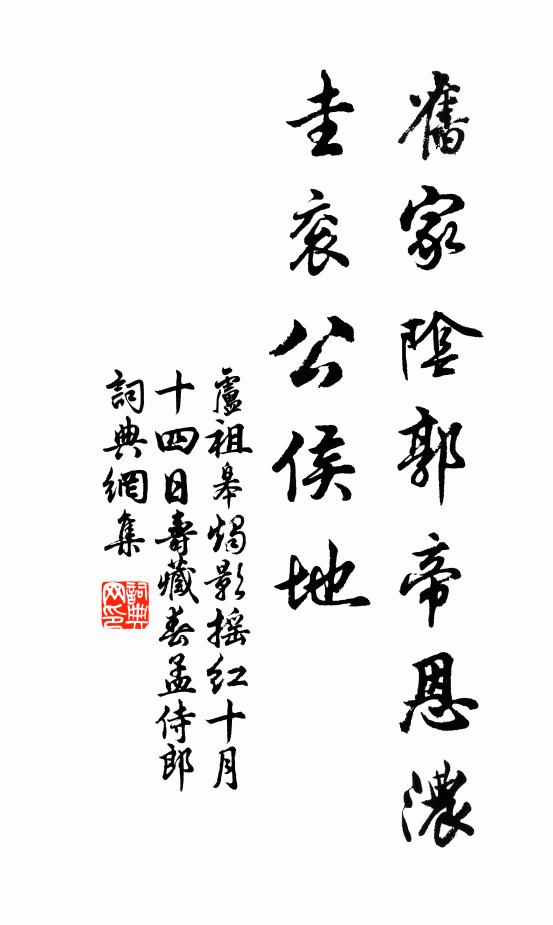 舊家陰郭帝恩濃
圭衮公侯地
盧祖皋燭影搖紅十月
十四日壽藏春孟侍郎
詞典網集
詞典网印